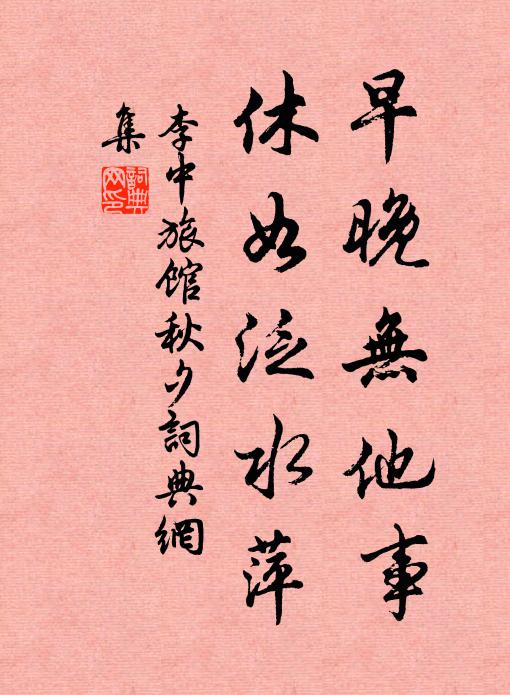 早晚無他事
休如泛水萍
李中旅館秋夕詞典網
集
詞典
网印